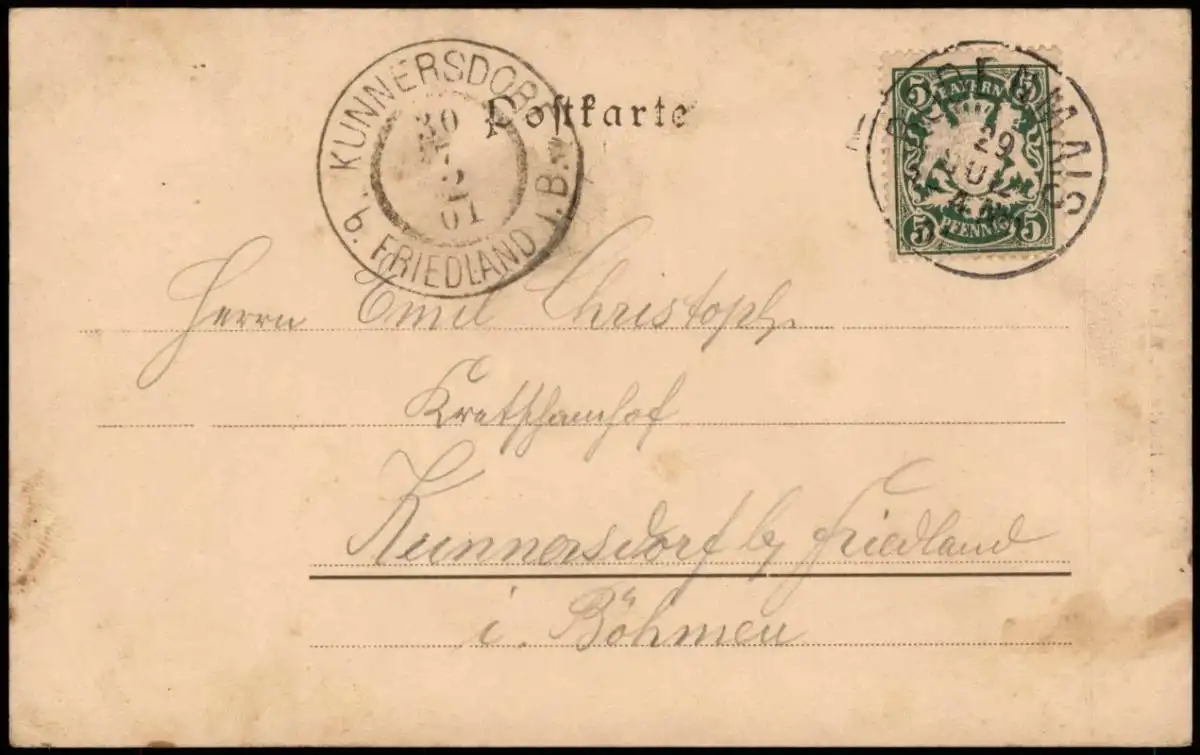 KUNNERSDORF
b. FRIEDLAND i. B.
30
7
01
Postkarte
BODENMAIS
29
JUL
5 BAYERN 5
5 PFENNIG 5
Herrn Emil Christoph
Kretschamhof
Kunnersdorf b/ Friedland
i. Böhmen